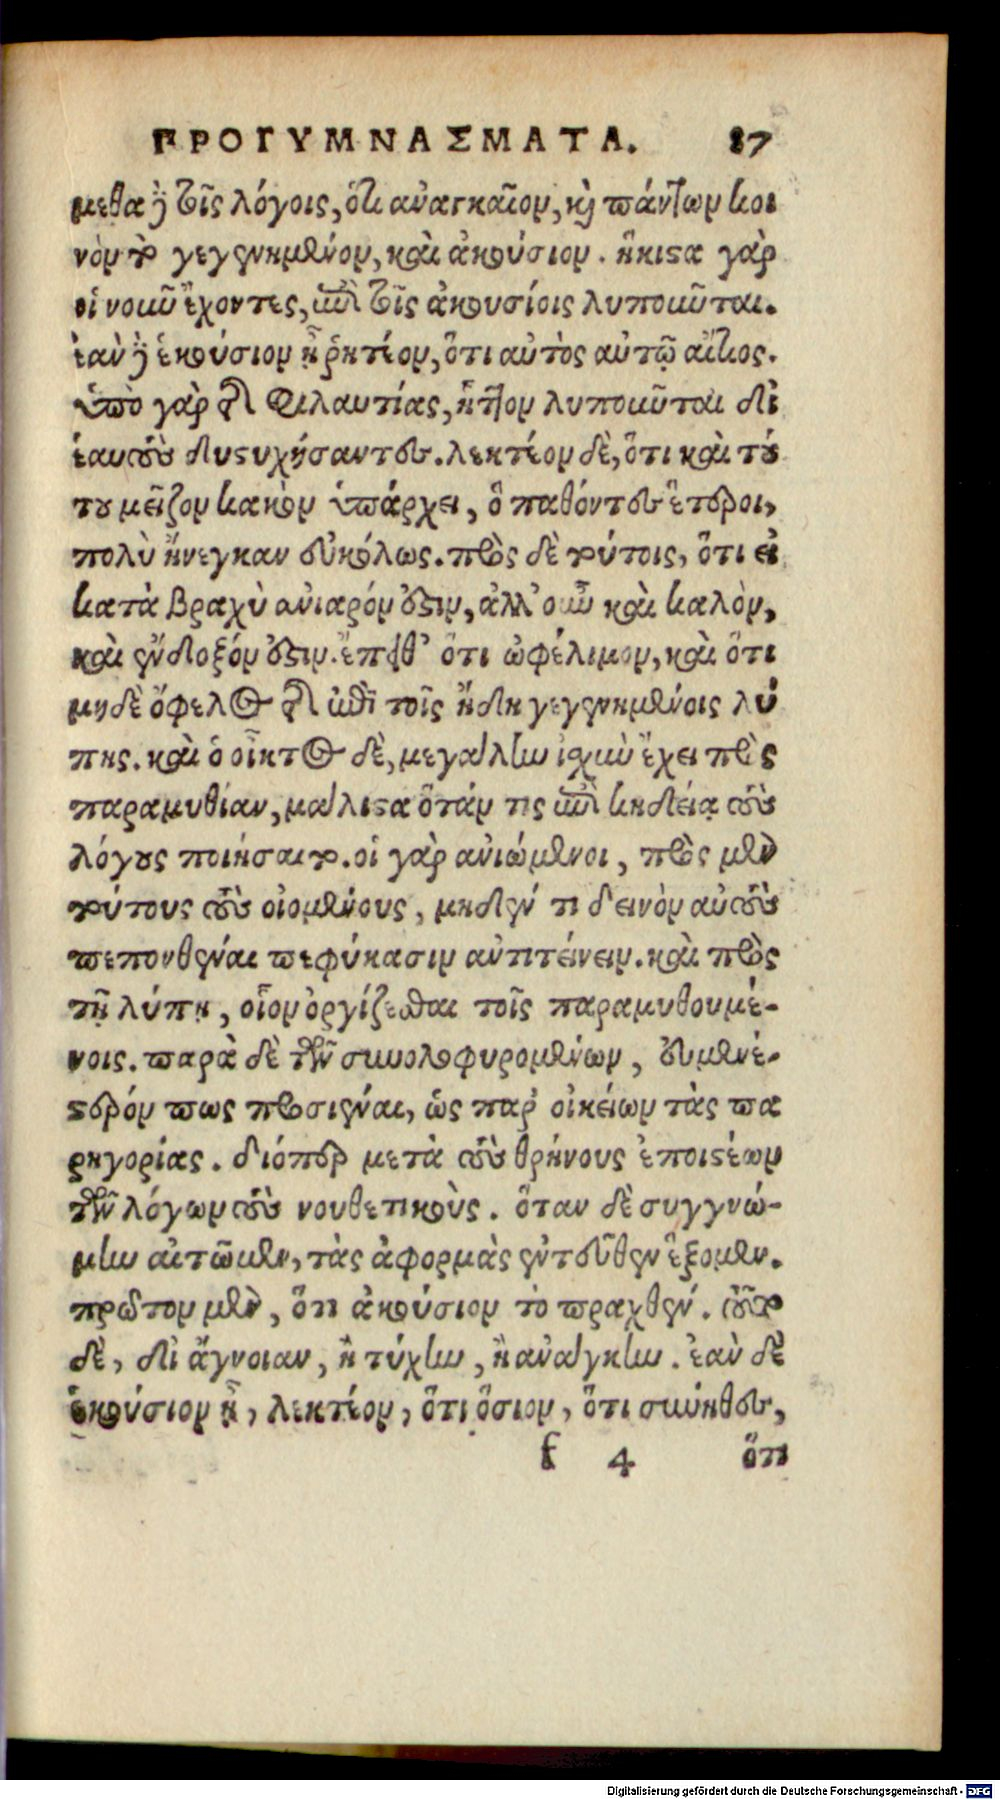 ΠΡΟΓΥΜΝΑΣΜΑΤΑ. 87
μεθα δὲ τοῖς λόγοις, ὅτι ἀναγκαῖον, καὶ πάντων κοι
νὸν τὸ γεγενημένον, καὶ ἀκούσιον. ἥκιστα γὰρ
οἱ νοῦν ἔχοντες, ἐπὶ τοῖς ἀκουσίοις λυποῦνται.
ἐὰν δὲ ἑκούσιον ᾖ ῥητέον, ὅτι αὐτὸς αὐτῷ αἴτιος.
ὑπὸ γὰρ τῆς φιλαυτίας, ἧττον λυποῦνται δι
ἑαυτοὺς δυστυχήσαντες. λεκτέον δὲ, ὅτι καὶ τού
του μεῖζον κακὸν ὑπάρχει, ὃ παθόντες ἕτεροι,
πολὺ ἤνεγκαν εὐκόλως. πρὸς δὲ τούτοις, ὅτι εἰ
κατὰ βραχὺ ἀνιαρόν ἐστιν, ἀλλ' οὖν καὶ καλὸν,
καὶ ἔνδοξόν ἐστιν. ἔπειθ' ὅτι ὠφέλιμον, καὶ ὅτι
μηδὲ ὄφελος τῆς ἐπὶ τοῖς ἤδη γεγενημένοις λύ
πης. καὶ ὁ οἶκτος δὲ, μεγάλην ἰσχὺν ἔχει πρὸς
παραμυθίαν, μάλιστα ὅτάν τις ἐπὶ κηδείᾳ τοὺς
λόγους ποιήσαιτο. οἱ γὰρ ἀνιώμενοι, πρὸς μὲν
τούτους τοὺς οἰομένους, μηδέν τι δεινὸν αὐτοὺς
πεπονθέναι πεφύκασιν ἀντιτείνειν. καὶ πρὸς
τῇ λύπῃ, οἷον ὀργίζεσθαι τοῖς παραμυθουμέ-
νοις. παρὰ δὲ τῶν συνολοφυρομένων, εὐμενέ-
στερόν πως προσιέναι, ὡς παρ' οἰκείων τὰς πα
ρηγορίας. διόπερ μετὰ τοὺς θρήνους ἐποιστέον
τῶν λόγων τοὺς νουθετικούς. ὅταν δὲ συγγνώ-
μην αἰτῶμεν, τὰς ἀφορμὰς ἐντεῦθεν ἕξομεν.
πρῶτον μὲν, ὅτι ἀκούσιον τὸ πραχθέν. τοῦτο
δὲ, δι ἄγνοιαν, ἢ τύχην, ἢ ἀνάγκην. ἐὰν δὲ
ἑκούσιον ᾖ, λεκτέον, ὅτι ὅσιον, ὅτι σύνηθες,
f 4 ὅτι
Digitalisierung gefördert durch die Deutsche Forschungsgemeinschaft - DFG